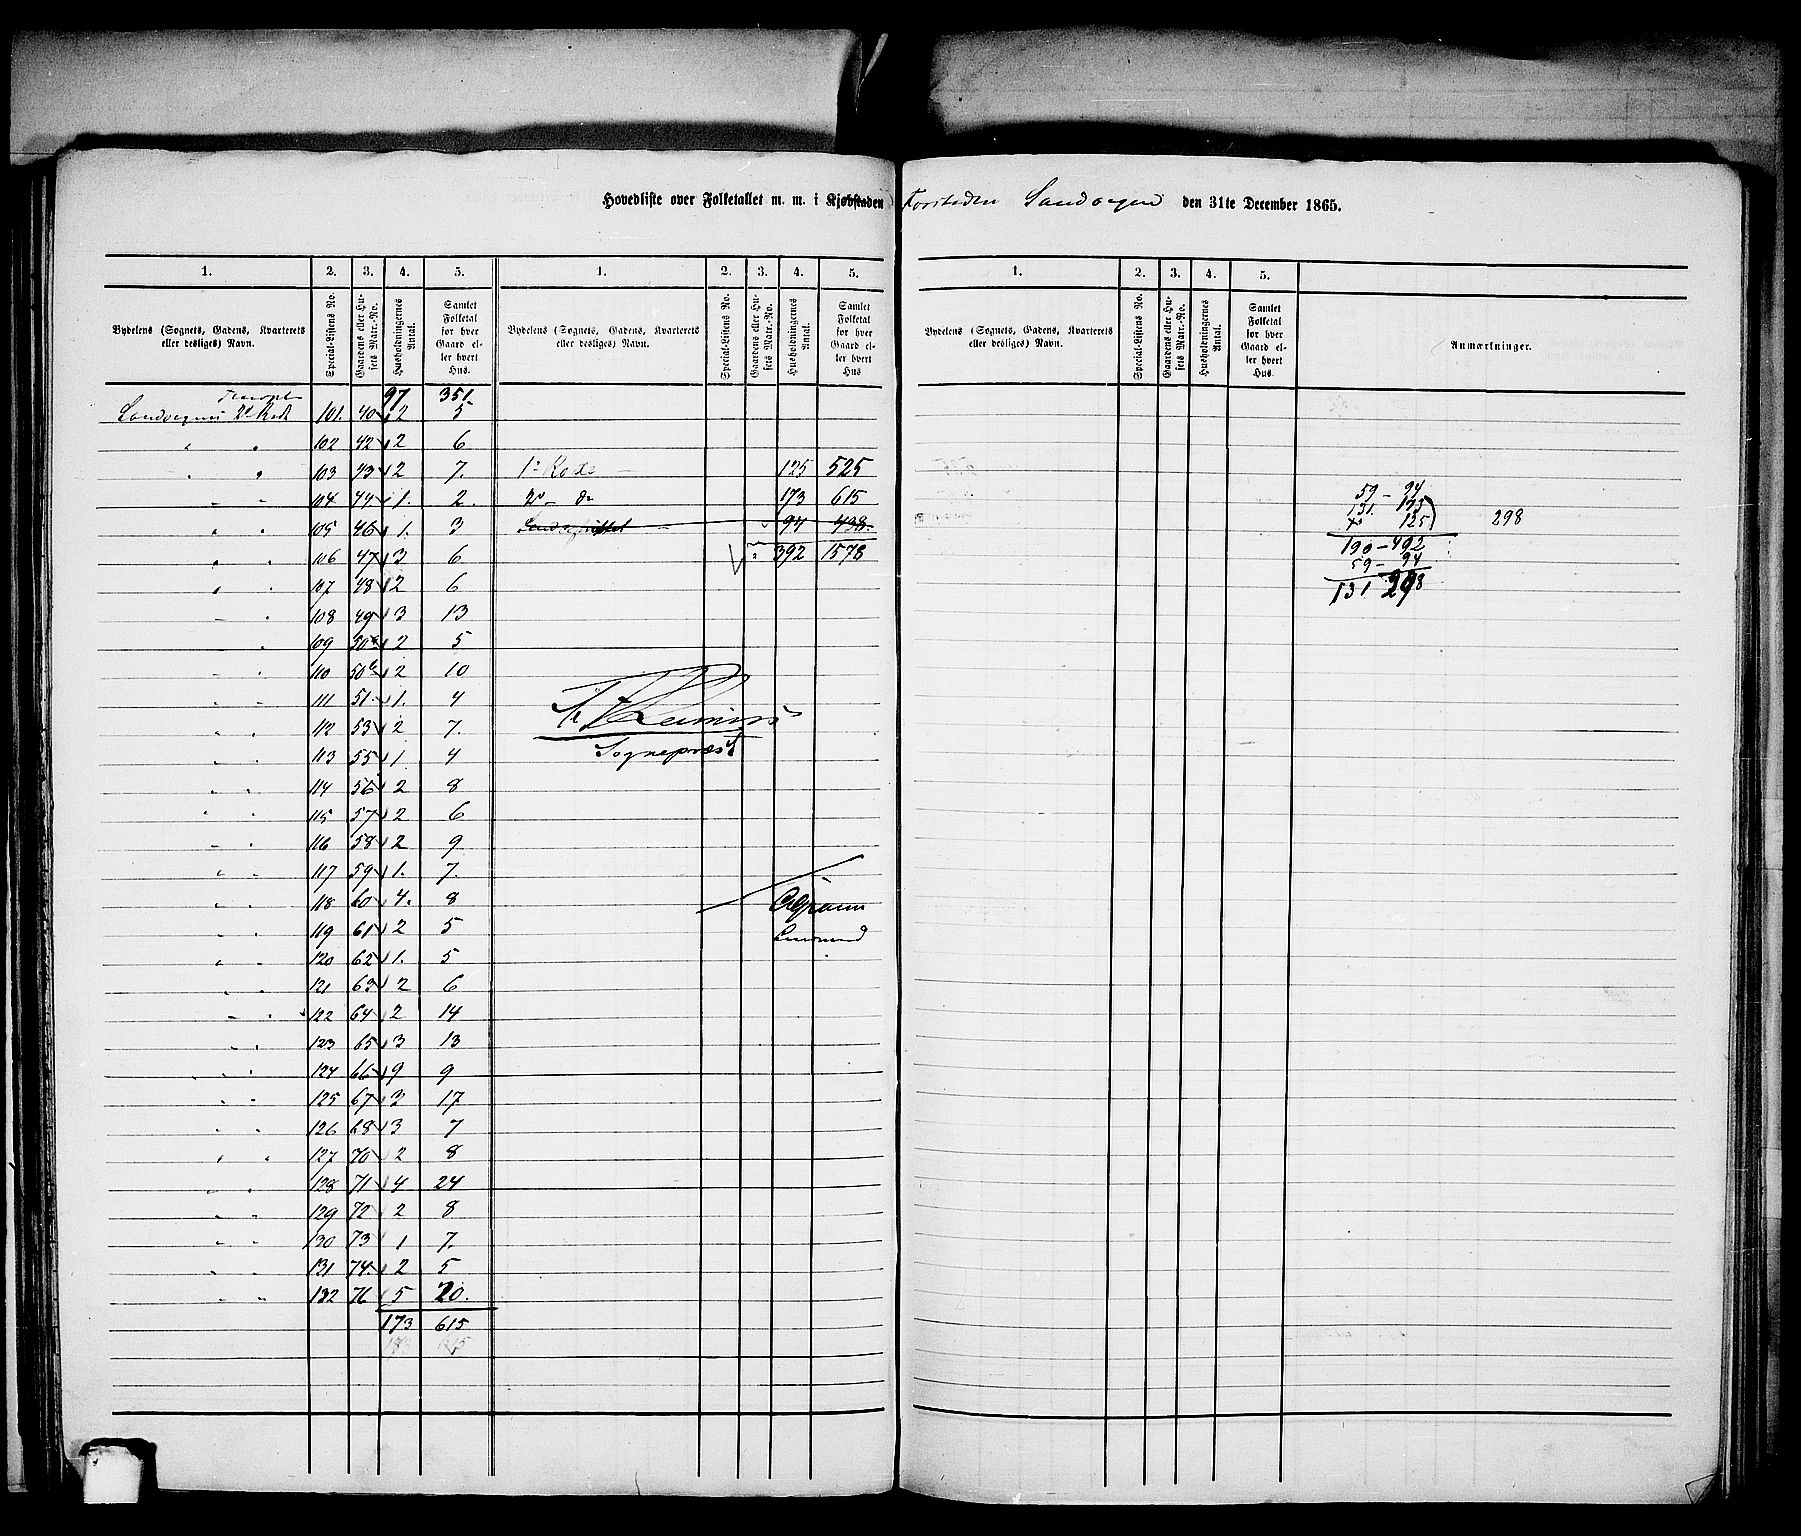 Hovedliste over Folketallet m. m. i Kjøbstaden Forstaden Sandvigen den 31te December 1865.
1. 2. 3. 4. 5. 1. 2. 3. 4. 5. 1. 2. 3. 4. 5.
Bydelens (Sognets, Gadens, Kvarterets eller desliges) Navn.
Special-Listens No.
Gaardens eller Husets Matr.-No.
Husholdningernes Antal.
Samlet Folketal for hver Gaard eller hvert Hus.
Bydelens (Sognets, Gadens, Kvarterets eller desliges) Navn.
Special-Listens No.
Gaardens eller Husets Matr.-No.
Husholdningernes Antal.
Samlet Folketal for hver Gaard eller hvert Hus
Bydelens (Sognets, Gadens, Kvarterets eller desliges) Navn.
Special-Listens No.
Gaardens eller Husets Matr.-No.
Husholdningernes Antal.
Samlet Folketal for hver Gaard eller hvert Hus
Anmærkninger.
Transpt 97 351
Sandvigens 2d Rode 101. 40 2 5
" " 102 42 2 6
" " 103 43 2 7.
" " 104 44 1. 2.
" " 105 46 1. 3
" " 106 47 3 6
" " 107 48 2 6
" " 108 49 3 13
" 109 50a 2 5
" " 110 50b 2 10
" " 111 51 1. 4
" " 112 53 2 7.
" " 113 55 1 4
" " 114 56 2 8
" " 115 57 2 6
" " 116 58 2 9
" " 117 59 1. 7.
" " 118 60 4. 8
" " 119 61 2 5
" " 120 62 1. 5
" " 121 63 2 6
" " 122 64 2 14
" " 123 65 3 13
" " 124 66 9 9
" " 125 67 3 17
" " 126 68 3 7
" " 127 70 2 8
" " 128 71 4 24
" " 129 72 2 8
" " 130 73 1 7.
" " 131 74 2 5
" " 132 76 5 20.
173 615
1ste Rode 125 525
2d do 173 615
94 438.
392 1578
Sognepræst
59 - 94
131. 173
125 298
190 - 492
59 - 94
131 298